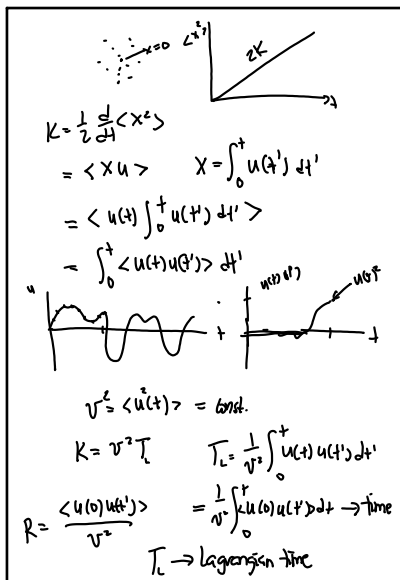 x=0
<x²>
2K
t
K = 1/2 d/dt <x²>
= <xu>  X = ∫₀ᵗ u(t') dt'
= <u(t) ∫₀ᵗ u(t') dt'>
= ∫₀ᵗ <u(t)u(t')> dt'
u  t  u(t)u(t')  u(t)²  t
v² = <u²(t)> = const.
K = v² T_L  T_L = 1/v² ∫₀ᵗ u(t) u(t') dt'
R = <u(0)u(t')>/v²  = 1/v² ∫₀ᵗ <u(0)u(t')> dt → time
T_L → Lagrangian time